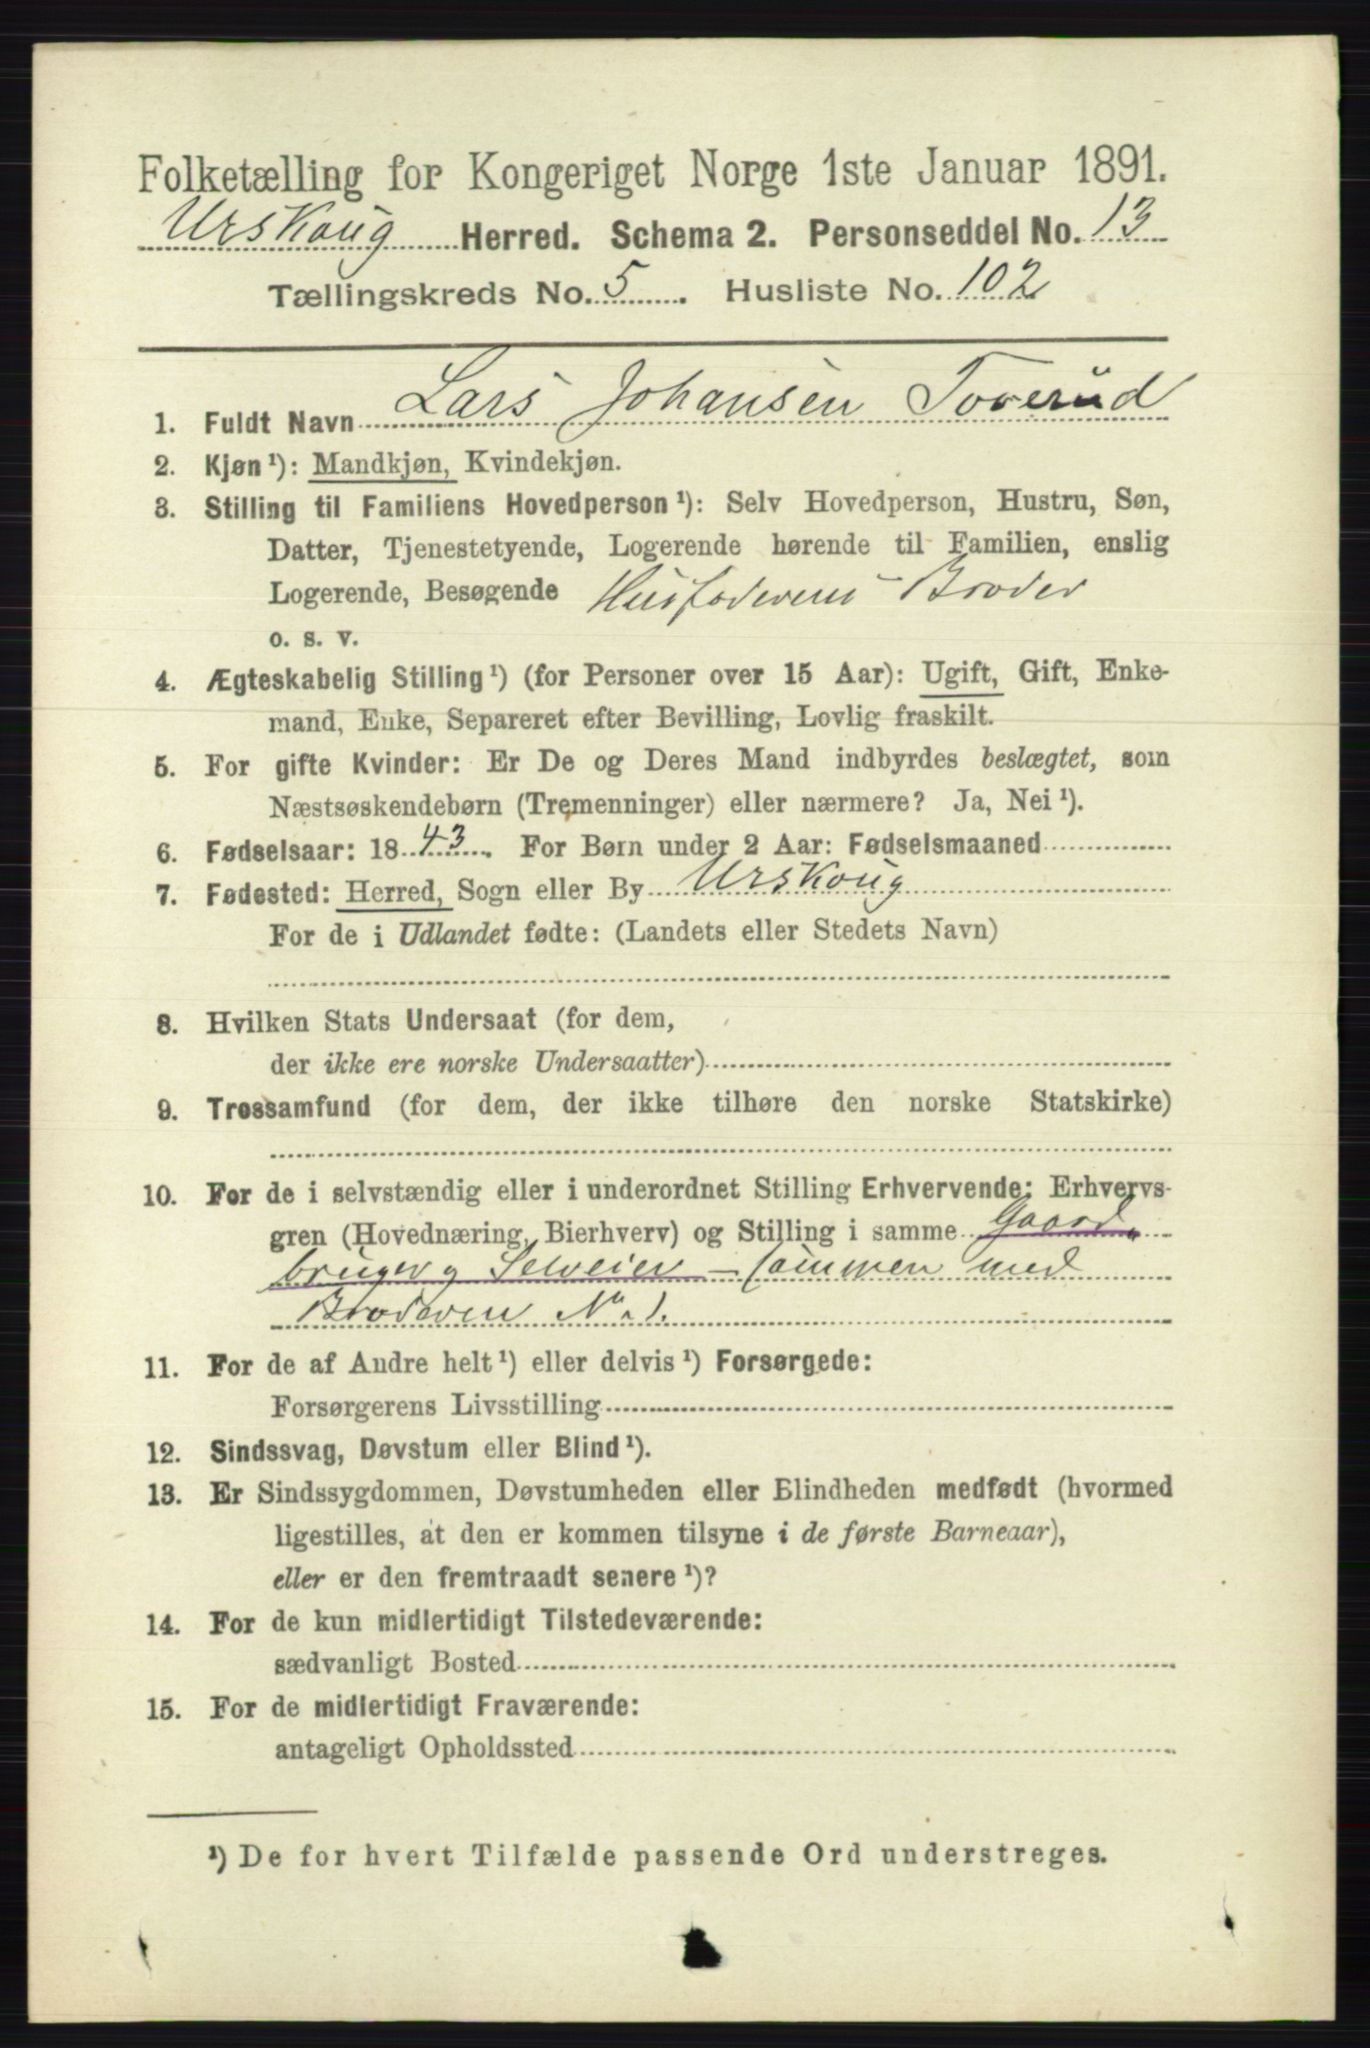 Folketælling for Kongeriget Norge 1ste Januar 1891.
Urskoug Herred. Schema 2. Personseddel No. 13
Tællingskreds No. 5. Husliste No. 102
1. Fuldt Navn Lars Johansen Toverud
2. Kjøn¹): Mandkjøn, Kvindekjøn.
3. Stilling til Familiens Hovedperson¹): Selv Hovedperson, Hustru, Søn,
Datter, Tjenestetyende, Logerende hørende til Familien, enslig
Logerende, Besøgende Husfaderens Broder
o. s. v.
4. Ægteskabelig Stilling¹) (for Personer over 15 Aar): Ugift, Gift, Enke-
mand, Enke, Separeret efter Bevilling, Lovlig fraskilt.
5. For gifte Kvinder: Er De og Deres Mand indbyrdes beslægtet, som
Næstsøskendebørn (Tremenninger) eller nærmere? Ja, Nei¹).
6. Fødselsaar: 1843. For Børn under 2 Aar: Fødselsmaaned
7. Fødested: Herred, Sogn eller By Urskoug
For de i Udlandet fødte: (Landets eller Stedets Navn)
8. Hvilken Stats Undersaat (for dem,
der ikke ere norske Undersaatter)
9. Trossamfund (for dem, der ikke tilhøre den norske Statskirke)
10. For de i selvstændig eller i underordnet Stilling Erhvervende: Erhvervs-
gren (Hovednæring, Bierhverv) og Stilling i samme Gaard„
bruger og Selveier – sammen med
Broderen No 1.
11. For de af Andre helt¹) eller delvis¹) Forsørgede:
Forsørgerens Livsstilling
12. Sindssvag, Døvstum eller Blind¹).
13. Er Sindssygdommen, Døvstumheden eller Blindheden medfødt (hvormed
ligestilles, at den er kommen tilsyne i de første Barneaar),
eller er den fremtraadt senere¹)?
14. For de kun midlertidigt Tilstedeværende:
sædvanligt Bosted
15. For de midlertidigt Fraværende:
antageligt Opholdssted
¹) De for hvert Tilfælde passende Ord understreges.